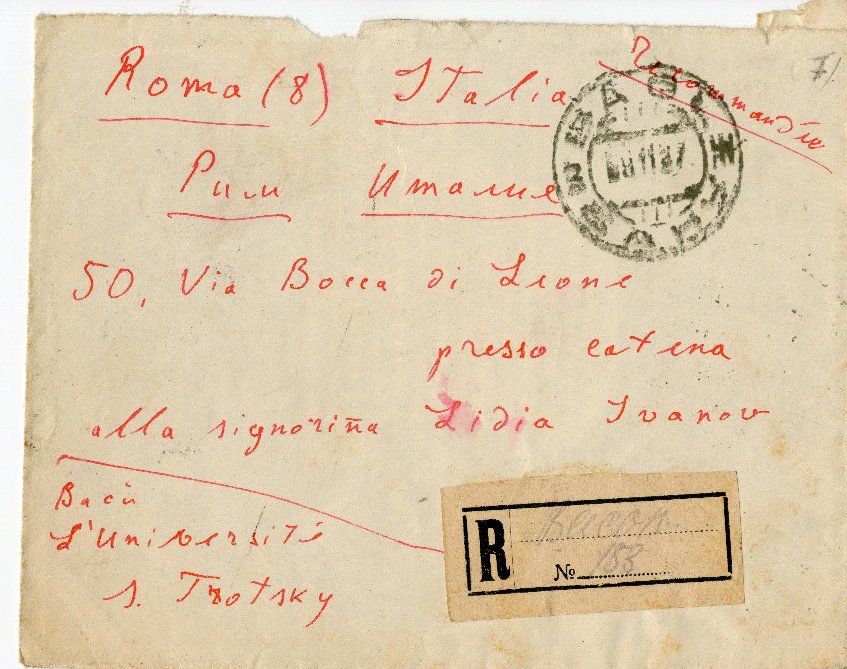 Roma (8) Italia
recommandée
Рим Италие
50, Via Bocca di Leone
presso catena
alla signoriña Lidia Ivanov
Bacù
L'Université
S. Trotsky
R
№ 153